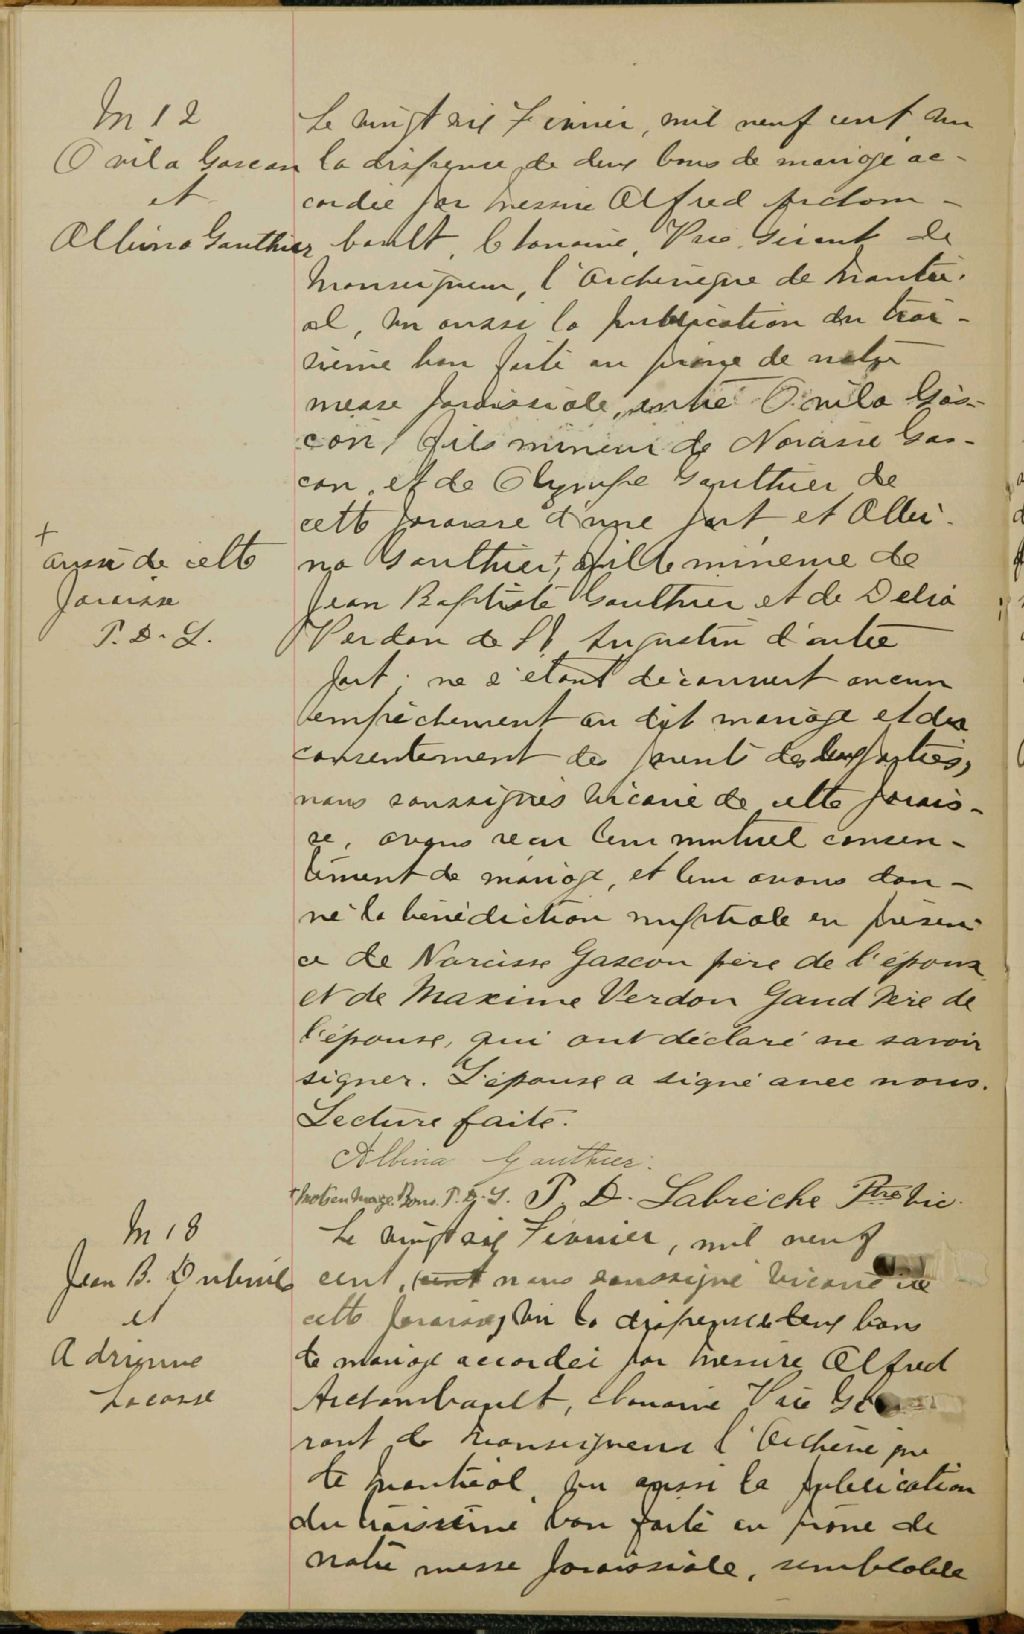 M 12
Ovila Gascon
et
Albina Gauthier
Le vingt six Fevrier, mil neuf cent, vu
la dispense de deux bans de mariage ac-
cordée par Messire Alfred Archam-
bault, Chanoine, Vice Gérant de
Monseigneur, l'Archevêque de Montré-
al, vu aussi la publication du troi-
sième ban faite au prône de notre
messe paroissiale, entre Ovila Gas-
con, fils mineur de Narcisse Gas-
con, et de Olympe Gauthier de
cette paroisse d'une part et Albi-
na Gauthier,+ fille mineure de
Jean Baptiste Gauthier et de Delia
Verdon de St Augustin d'autre
part; ne s'étant découvert aucun
empêchement au dit mariage et du
consentement des parents des deux parties,
nous soussignés vicaire de cette parois-
se, avons reçu leur mutuel consen-
tement de mariage, et leur avons don-
né la bénédiction nuptiale en présen-
ce de Narcisse Gascon père de l'époux
et de Maxime Verdon Gand Père de
l'épouse, qui ont déclaré ne savoir
signer. L'épouse a signé avec nous.
Lecture faite.
Albina Gauthier.
+
aussi de cette
paroisse
P. D. L.
P. D. L. P. D. Labrèche Ptre Vic.
M 18
Jean B.
et
Adrienne
Lacasse
Le vingt six Fevrier, mil neuf
cent, nous soussigné vicaire de
cette paroisse, vu la dispense de deux bans
de mariage accordée par Messire Alfred
Archambault, Chanoine Vice Gé
rant de Monseigneur l'Archevêque
de Montréal, vu aussi la publication
du troisième ban faite au prône de
notre messe paroissiale, semblable